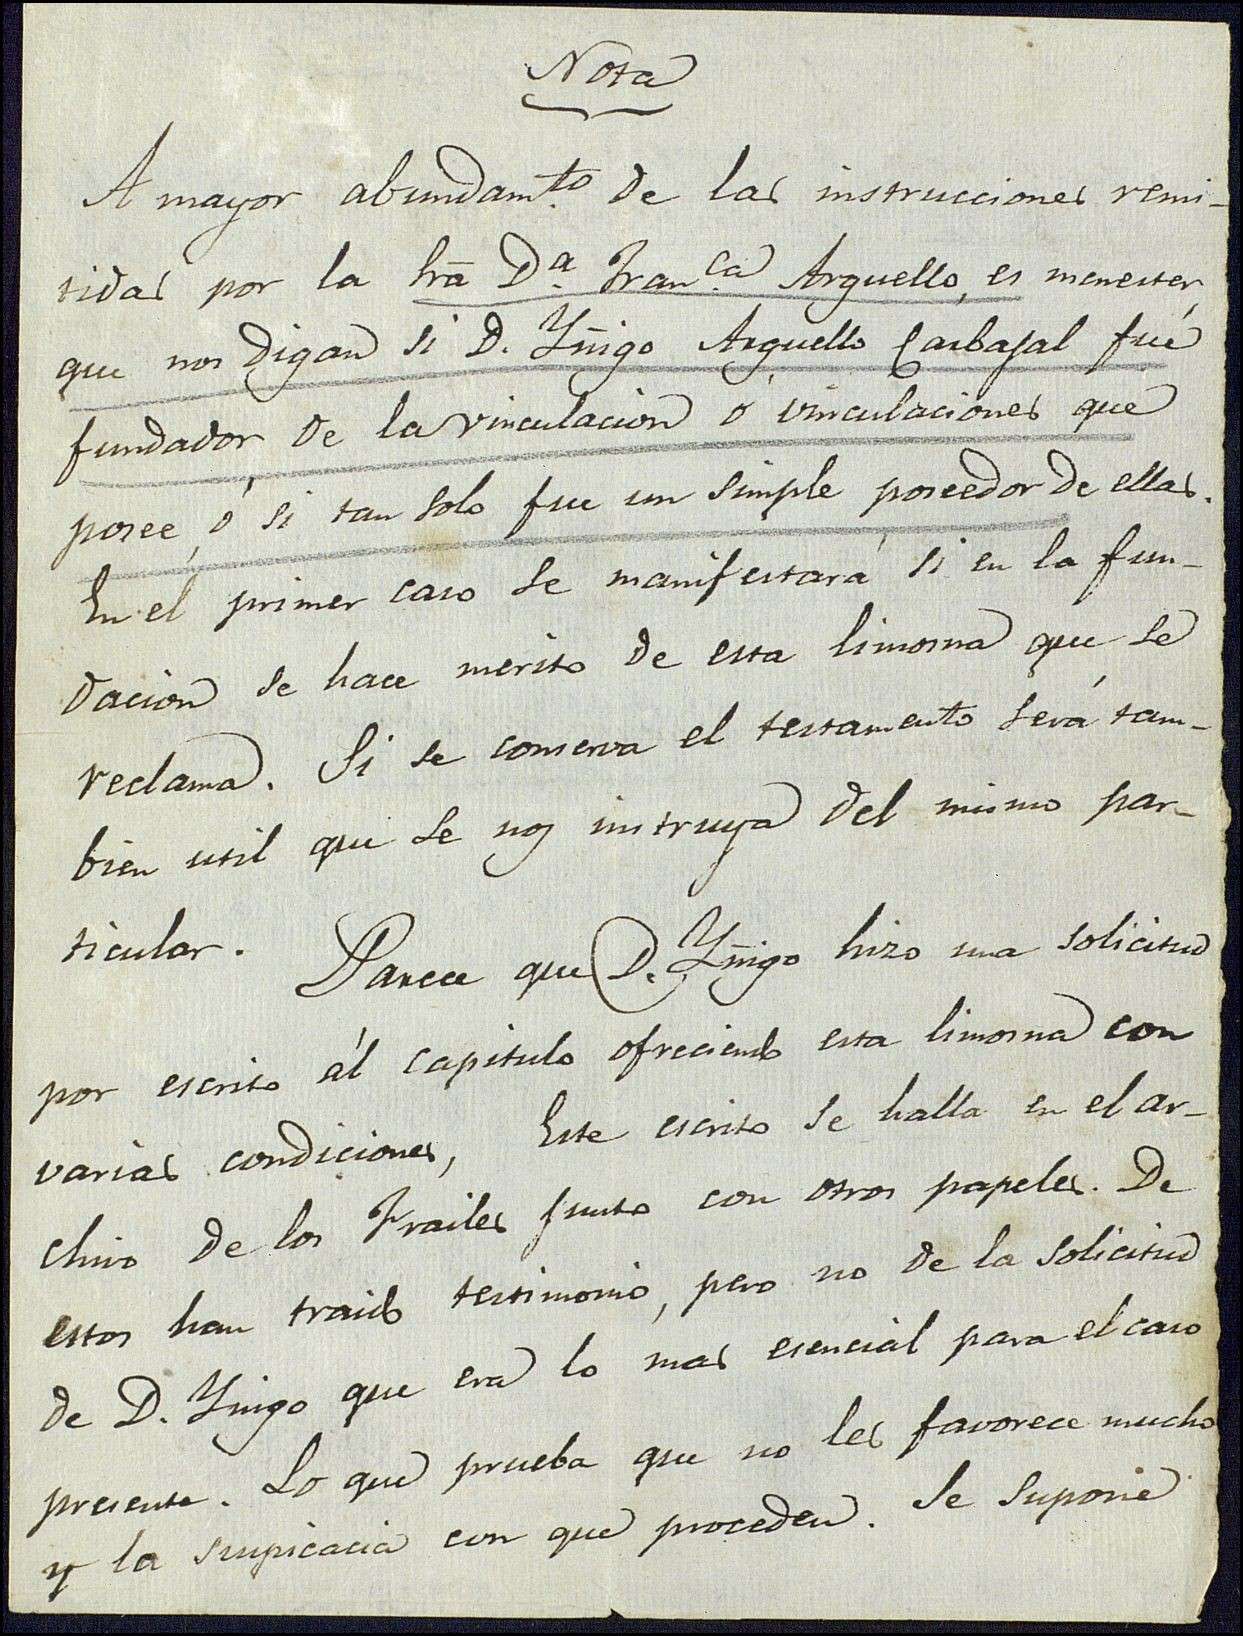 Nota
A mayor abundam.to de las instrucciones remi-
tidas por la Sra D.a Fran.ca Arguello, es menester,
que nos digan si D. Yñigo Arguello Carbajal fué
fundador de la vinculacion ó vinculaciones que
posee, ó si tan solo fue un simple poseedor de ellas.
En el primer caso se manifestará si en la fun-
dacion se hace merito de esta limosna que se
reclama. Si se conserva el testamento será tam-
bien util que se nos instruya del mismo par-
ticular. Parece que D. Yñigo hizo una solicitud
por escrito ál capitulo ofreciendo esta limosna con
varias condiciones, Este escrito se halla en el ar-
chivo de los Frailes junto con otros papeles. De
estos han traido testimonio, pero no de la solicitud
de D. Yñigo que era lo mas esencial para el caso
presente. Lo que prueba que no les favorece mucho
y la suspicacia con que proceden. Se supone